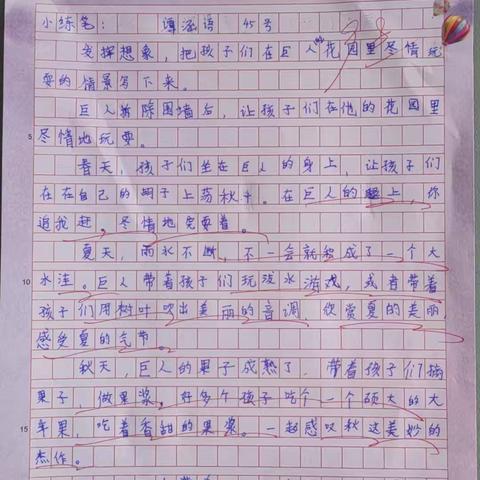 小练笔： 谭涵语 45号
发挥想象，把孩子们在巨人的花园里尽情玩
耍的情景写下来。
巨人拆除围墙后，让孩子们在他的花园里
5 尽情地玩耍。
春天，孩子们坐在巨人的身上，让孩子们
在在自己的脖子上荡秋千。在巨人的腿上，你
追我赶。尽情地玩耍着。
夏天，雨水不断，不一会就积成了一个大
10 水洼。巨人带着孩子们玩泼水游戏，或者带着
孩子们用树叶吹出美丽的音调，欣赏夏的美丽，
感受夏的气节。
秋天，巨人的果子成熟了，带着孩子们摘
果子，做果浆。好多个孩子吃个一个硕大的大
15 苹果，吃着香甜的果浆。一起感叹秋这美妙的
杰作。